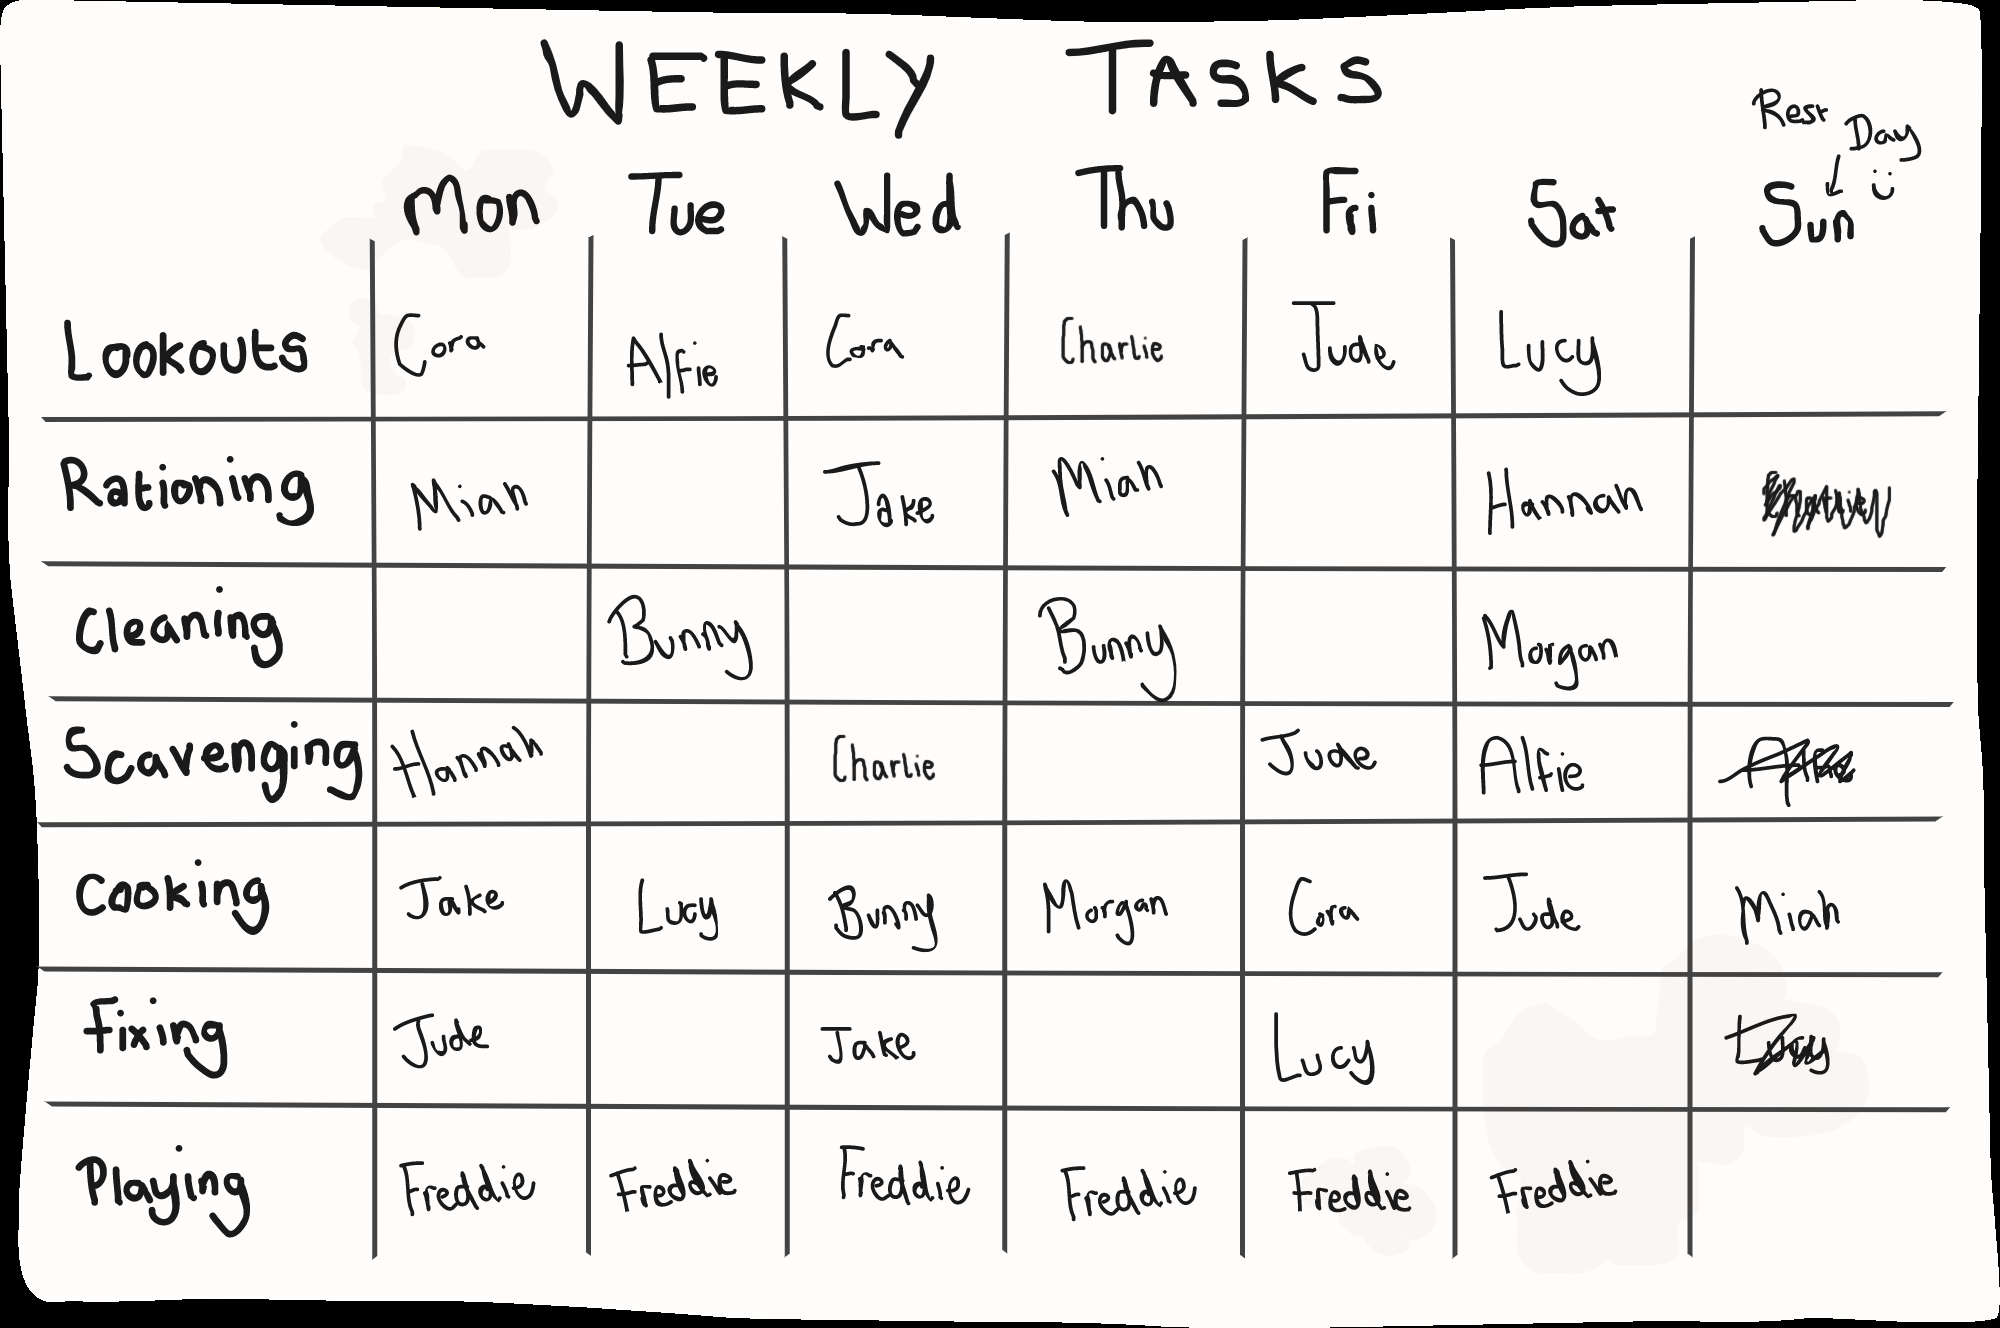 WEEKLY TASKS
Rest Day
Mon Tue Wed Thu Fri Sat Sun
Lookouts Cora Alfie Cora Charlie Jude Lucy
Rationing Miah Jake Miah Hannah Charlie
Cleaning Bunny Bunny Morgan
Scavenging Hannah Charlie Jude Alfie Alfie
Cooking Jake Lucy Bunny Morgan Cora Jude Miah
Fixing Jude Jake Lucy Lucy
Playing Freddie Freddie Freddie Freddie Freddie Freddie